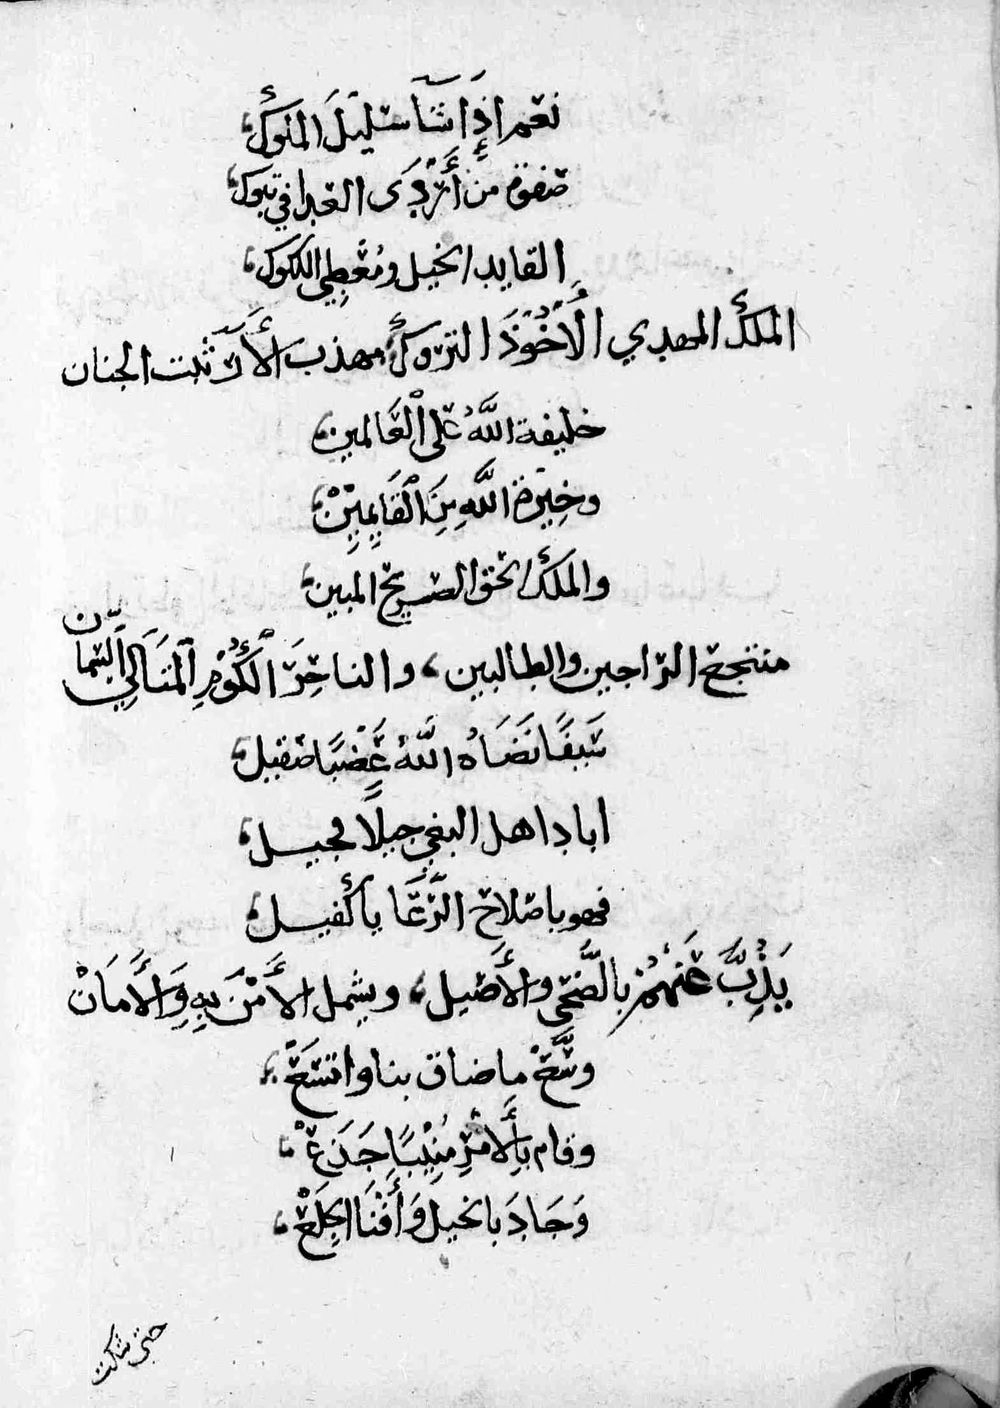 نعم إذا شآ سليل الملوك،
صفوة من أردى العدا في تبوك،
القايد الخيل ومعطي اللكوك،
الملك المهدي الأخوذ التروك، مهذب الأرآ ثبت الجنان
خليفة اللَّه على العالمين،
وخيرة اللَّه من القايمين،
والملك الحق الصريح المبين،
منتجع الراجين والطالبين، والناحر الكوم المتالي السمان
سيفًا نضاه اللَّه عضبًا صقيل،
اباد اهل البغي جيلًا فجيل،
فهو باصلاح الرعايا كفيل،
يذبّ عنهم بالضّحى والأصيل، ويشمل الأمن به والأمان
وسّع ما ضاق بنا واتسع،
وقام بالأمر منيبًا جذع،
وجاد بالخيل وأفنا الخلع،
حتى شاكت